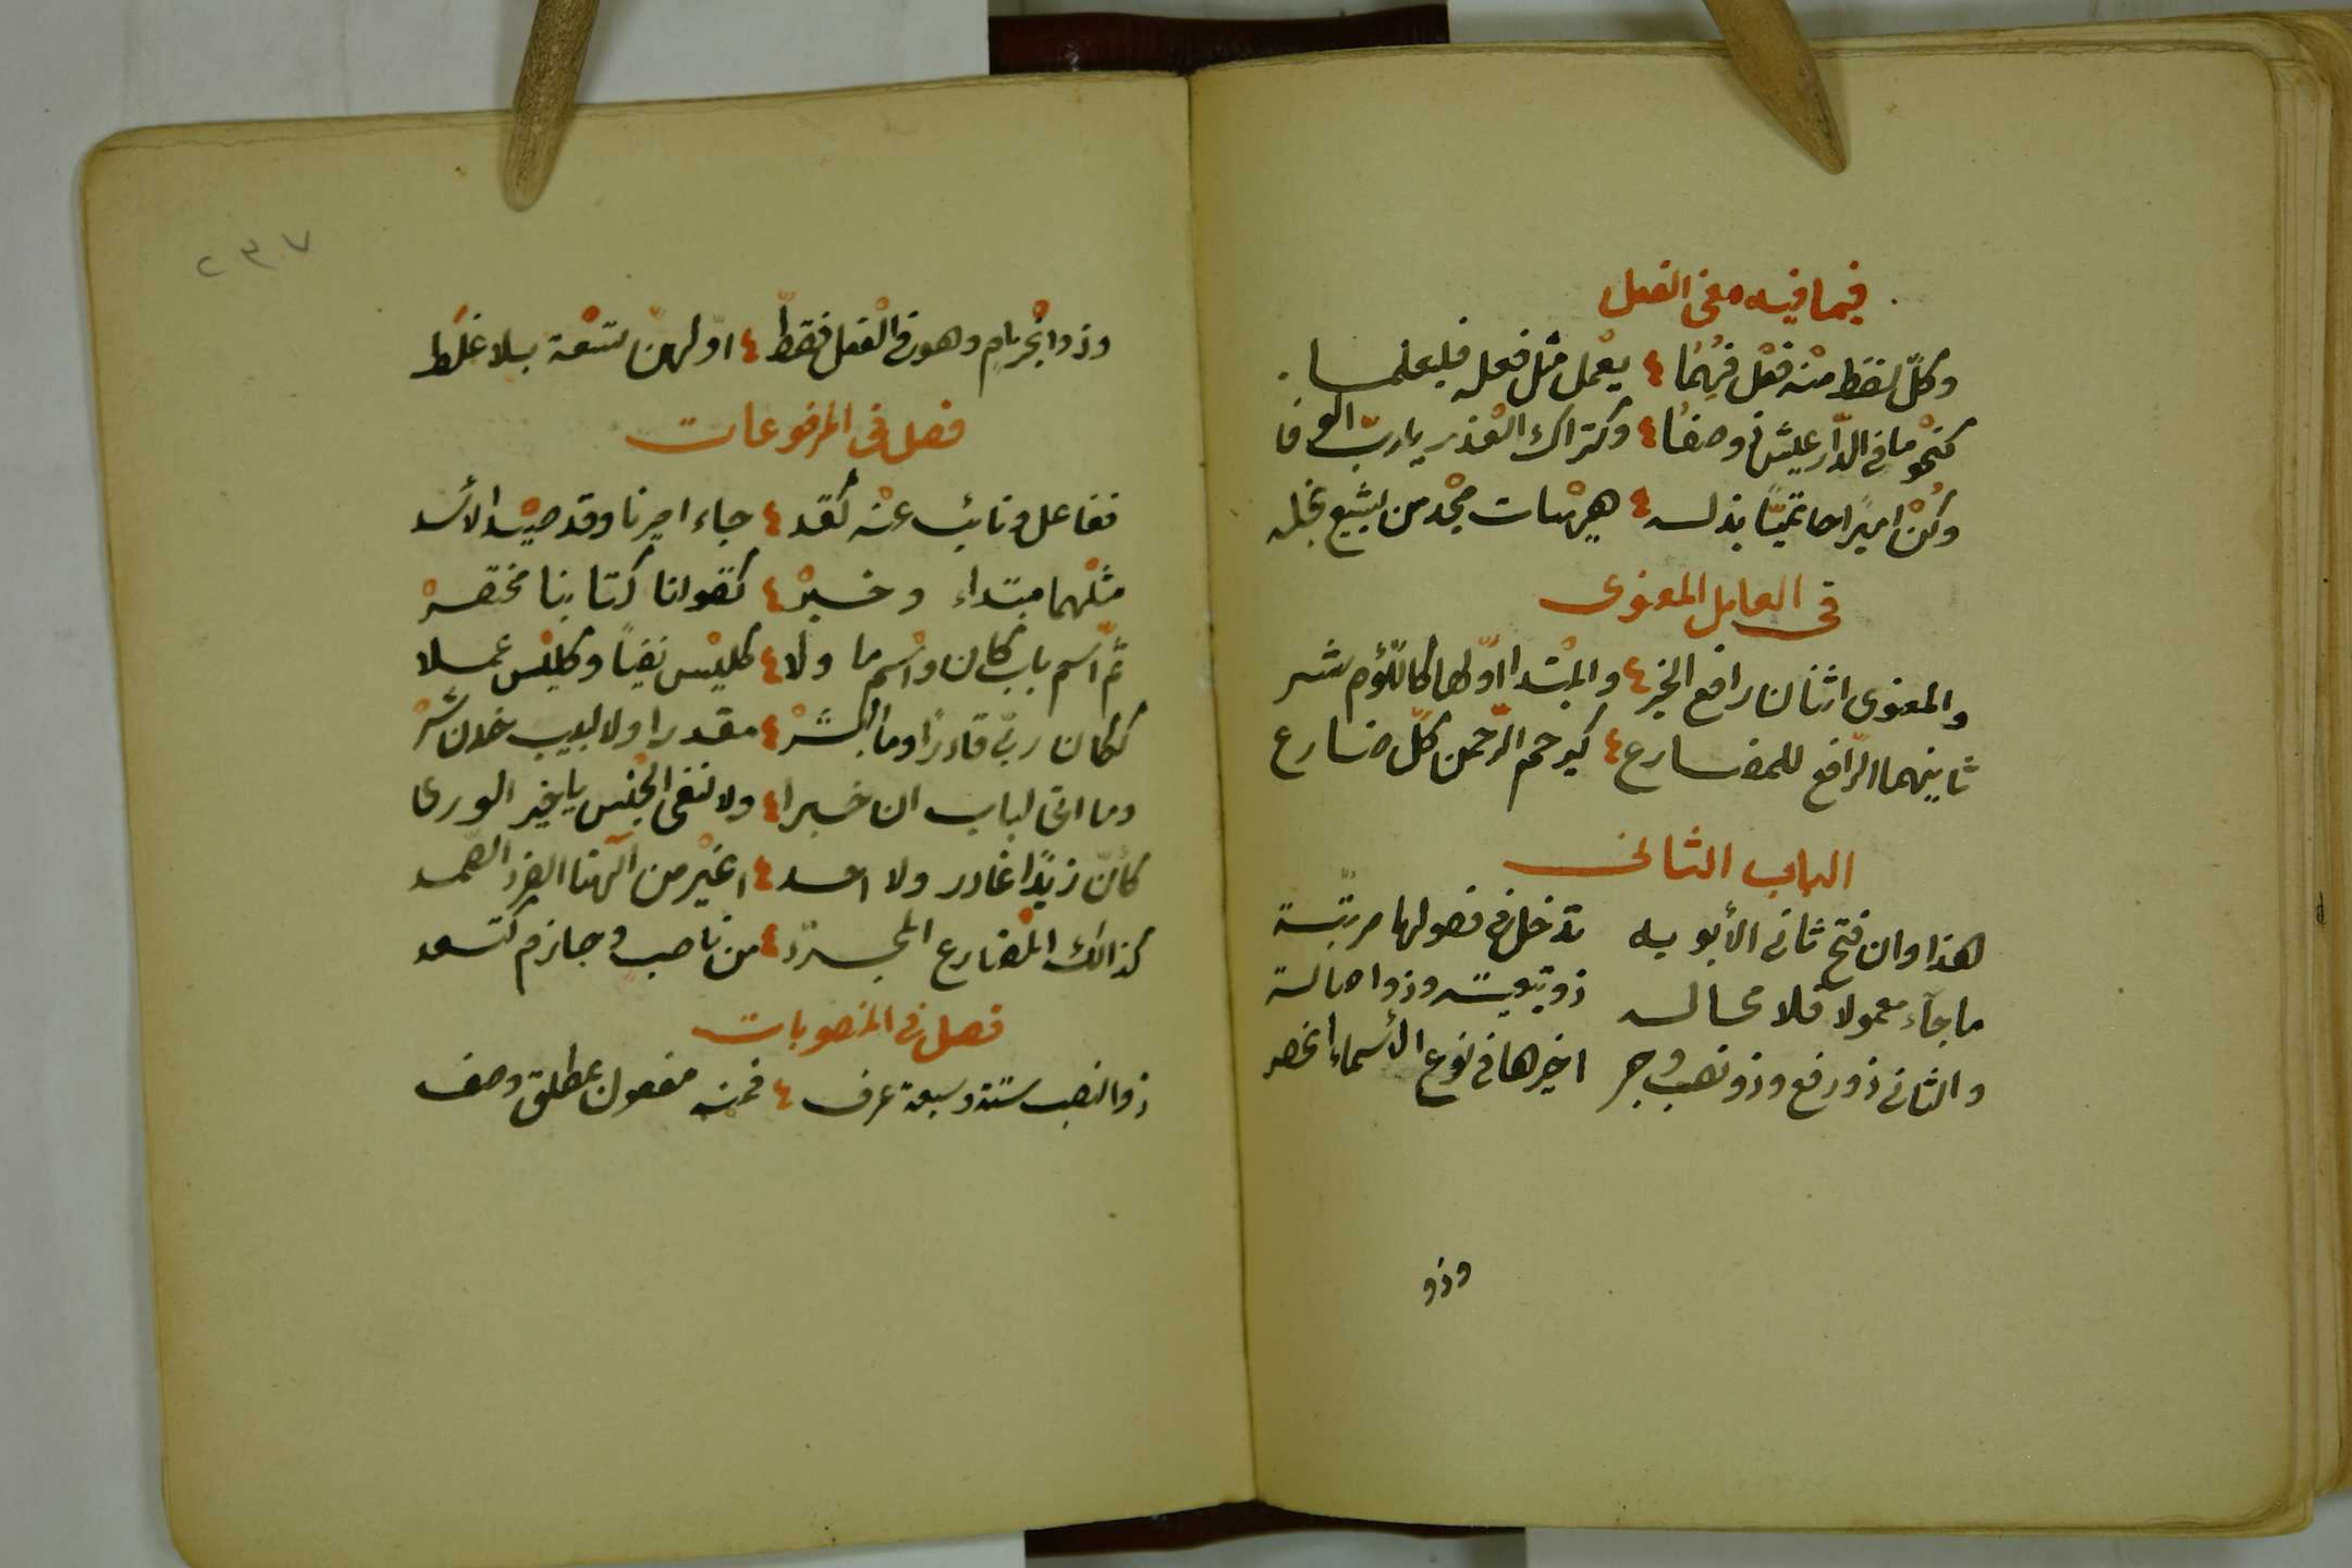 فيما فيه معنى الفعل
وكلّ لفظ منه فعْل فُهِمَا ٤ يعْمل مثْل فعله فليعلما
كنحْو ما في الدّار عيش وصفا ٤ وكتراك الغدْر يا ربّ الوفا
وكُنْ اميرًا حاتميًّا بذله ٤ هيْهات مجْد من يشيع بخله
في العامل المعنوى
والمعنوى اثنان رافع الخبر ٤ والمبْتدا اوّلها كاللّؤم شر
ثانيهما الرّافع للمضارع ٤ كيرحم الرّحمن كلّ ضارع
الباب الثانى
هذا وان فتح ثانى الأبوبه تدخل فى فصولها مرتّبة
ما جآء معمولا فلا محاله ذو تبعيته وذو اصالة
والثانى ذو رفع وذو نصب وجر اخيرها فى نوع الأسماء انحصر
وذو
٢٣٧
وذو انجْزام وهو فى الْفعل فقطّ ٤ اوّلهنّ تسْعة بلا غلَط
فصل فى المرفوعات
ففاعل ونائب عنْه كقد ٤ جاء اميرنا وقد صيْد الأسد
مثْلهما مبتداء وخبرْ ٤ كقولنا كتابنا مختصرْ
ثمّ اسْم باب كان واسْم ما ولا ٤ كليْس نفيًا وكليْس عملا
ككان ربّى قادرًا وما البشرْ ٤ مقدرا ولا لبيب خدن شرْ
وما اتى لباب ان خبرا ٤ ولا لنفى الجنْس يا خير الورى
كأنّ زيْدًا غادر ولا احد ٤ اغيْر من الٓهنا الفرد الصّمد
كذالك المْضارع المجرّد ٤ من ناصب وجازم كتسعد
فصل فى المنصوبات
ذو النصب ستة وسبعة عرف ٤ فمنه مفعول بمطلق وصف